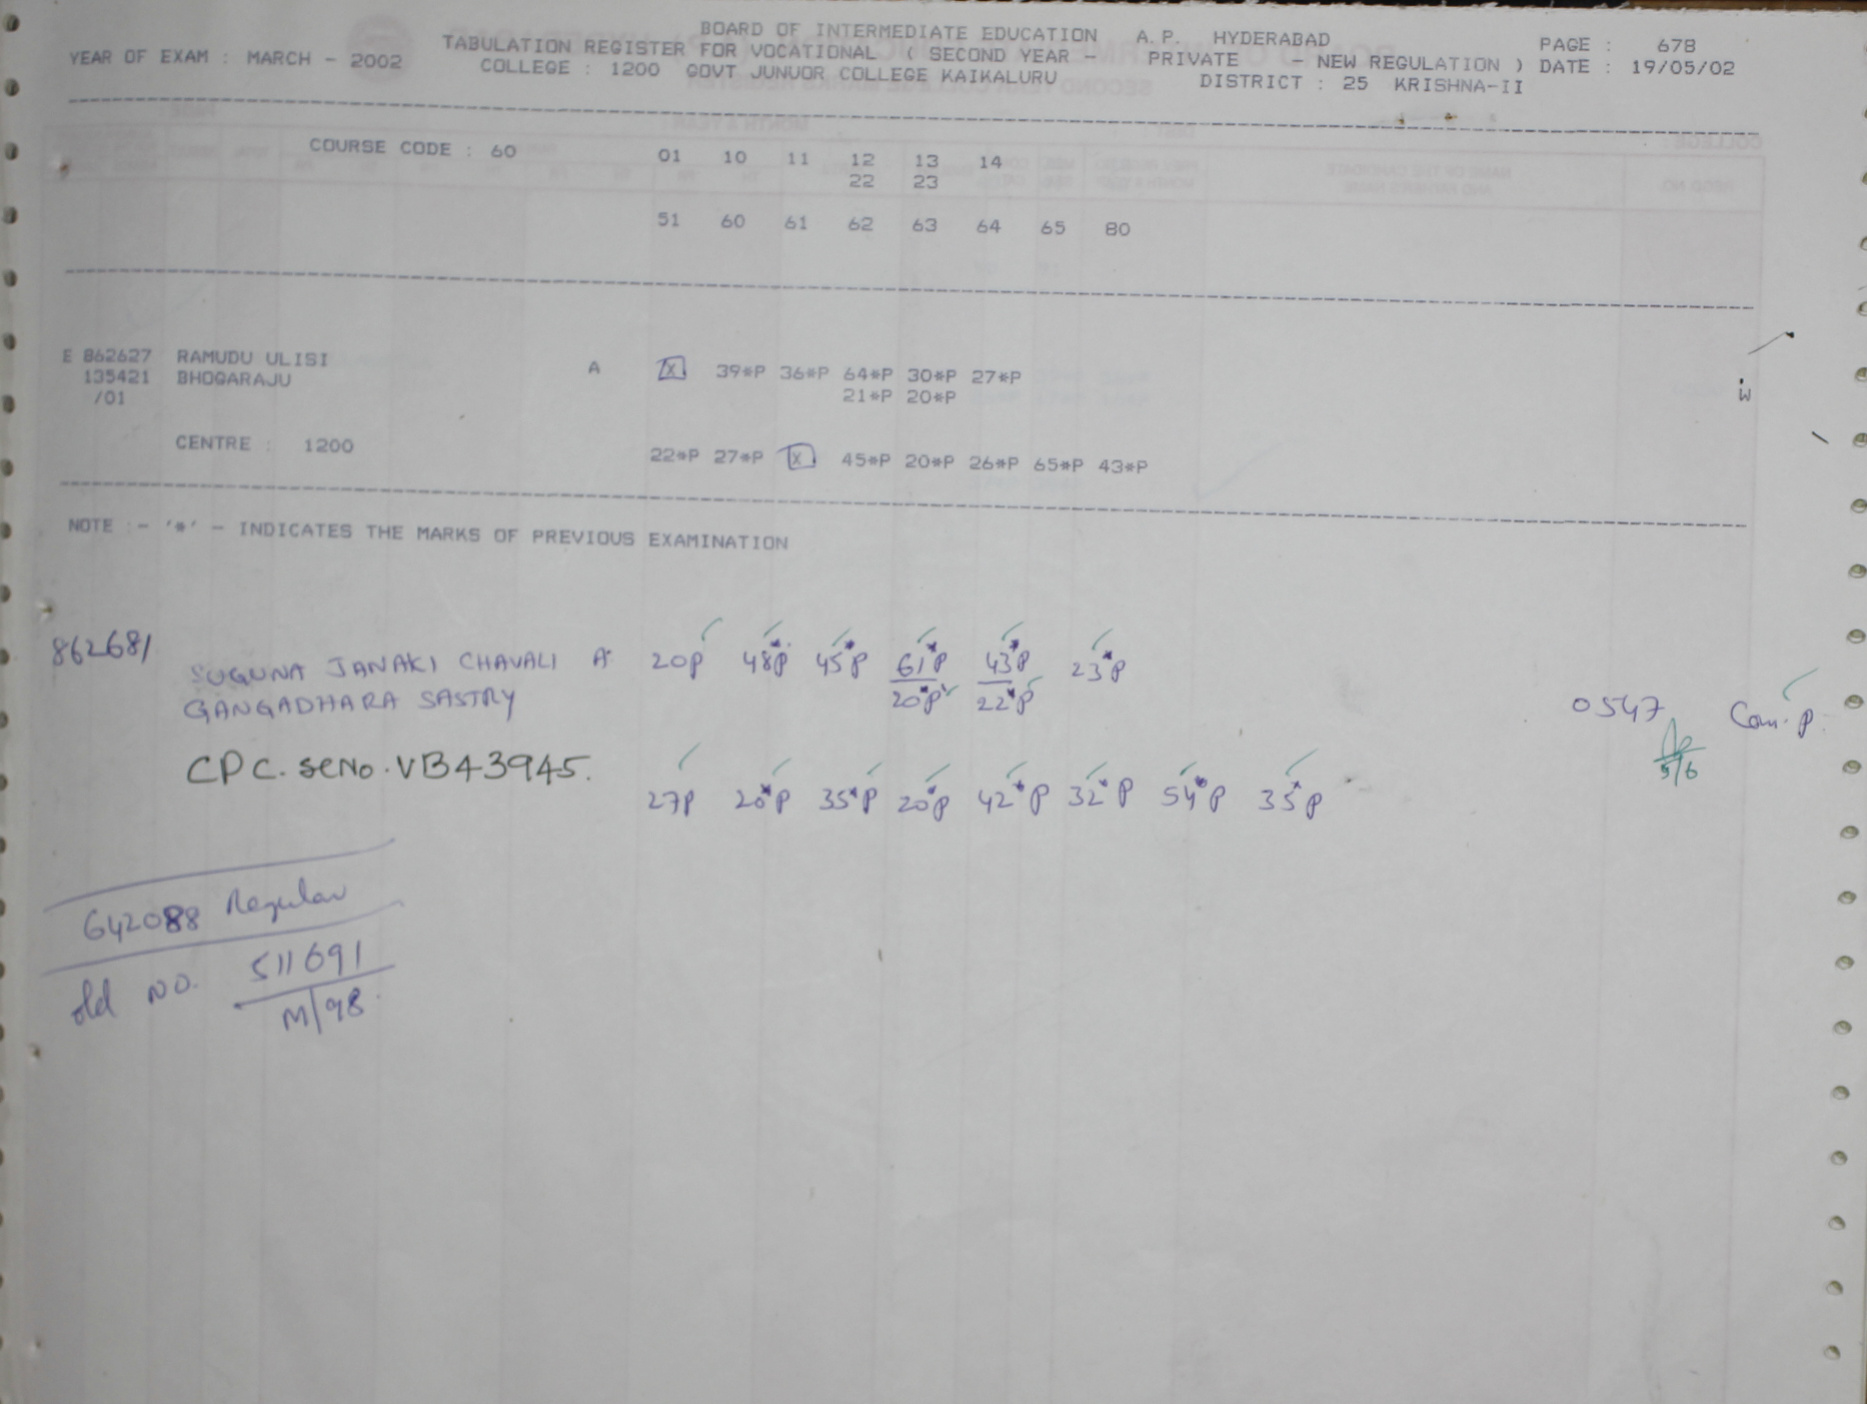 BOARD OF INTERMEDIATE EDUCATION A.P. HYDERABAD
YEAR OF EXAM : MARCH - 2002 TABULATION REGISTER FOR VOCATIONAL ( SECOND YEAR - PRIVATE - NEW REGULATION ) PAGE : 678
COLLEGE : 1200 GOVT JUNUOR COLLEGE KAIKALURU DISTRICT : 25 KRISHNA-II DATE : 19/05/02
COURSE CODE : 60 01 10 11 12 13 14
22 23
51 60 61 62 63 64 65 80
E 862627 RAMUDU ULISI A X 39*P 36*P 64*P 30*P 27*P
135421 BHOGARAJU 21*P 20*P
/01
W
CENTRE : 1200 22*P 27*P X 45*P 20*P 26*P 65*P 43*P
NOTE :- '*' - INDICATES THE MARKS OF PREVIOUS EXAMINATION
862681 SUGUNA JANAKI CHAVALI A 20P 48*P 45*P 61*P 43*P 23*P
GANGADHARA SASTRY 20*P 22*P 0547 Com. P.
5/6
CPC. SENo. VB43945.
27P 20*P 35*P 20*P 42*P 32*P 54*P 35*P
642088 Regular
old NO. 511691
M/98.